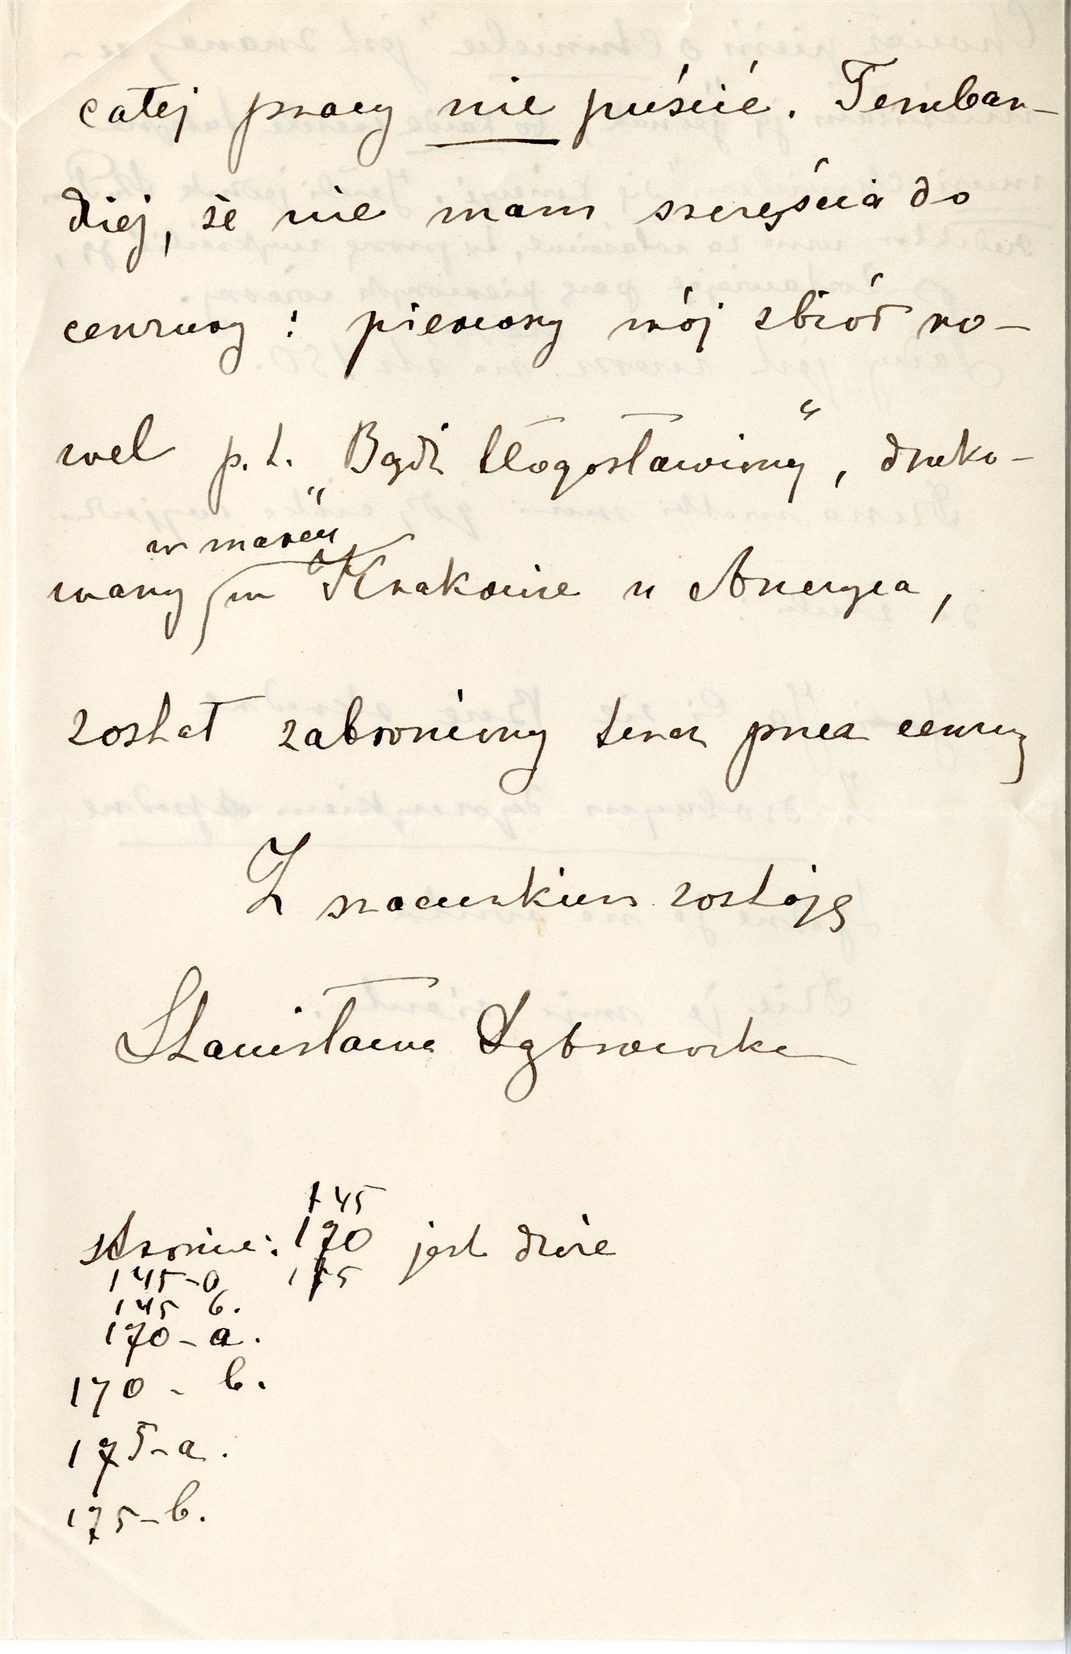 całej pracy nie puście. Tembar-
dziej, że nie mam szczęścia do
cenzury: pierwszy mój zbiór no-
wel p.t. "Bądź błogosławiony", druko-
w marcu
wany w Krakowie u Anczyca,
został zabroniony teraz przez cenzurę
Z szacunkiem zostaję
Stanisława Dąbrowska
145
stronic: 170 jest dwie
175
145-a
145 b.
170-a.
170-b.
175-a.
175-b.